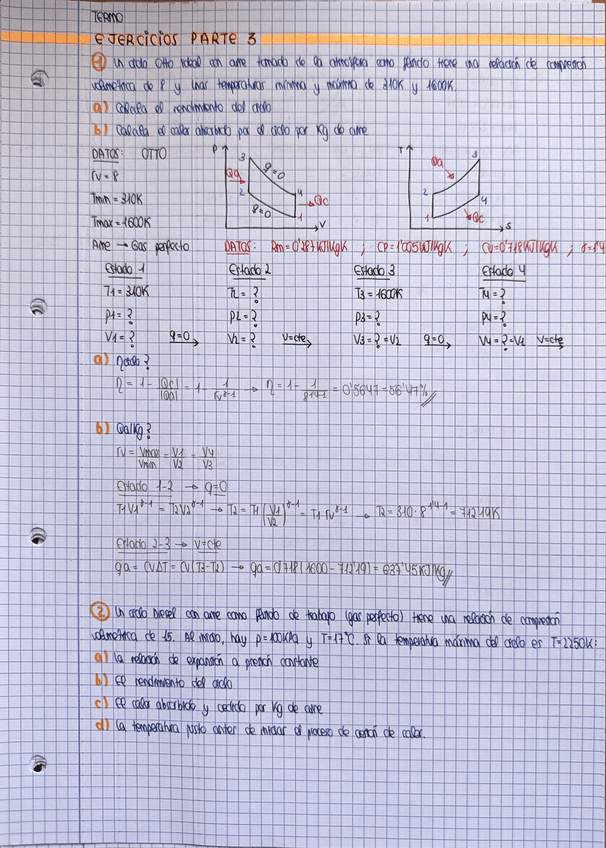 TERMO
EJERCICIOS PARTE 3
1 Un ciclo Otto ideal con aire tomado de la atmósfera como fluido tiene una relación de compresión
volumétrica de 8 y unas temperaturas mínima y máxima de 310K y 1600K.
a) Calcula el rendimiento del ciclo
b) Calcula el calor absorbido por el ciclo por Kg de aire
DATOS: OTTO
rv = 8
Tmin = 310K
Tmax = 1600K
Aire → Gas perfecto
P 3 q=0 Qa 2 4 Qc q=0 1 V
T 3 Qa 2 4 1 Qc S
DATOS: Rm=0'287KJ/KgK ; CP=1'005KJ/KgK ; CV=0'718KJ/KgK ; γ=1'4
Estado 1 Estado 2 Estado 3 Estado 4
T1=310K T2=? T3=1600K T4=?
P1=? P2=? P3=? P4=?
V1=? q=0 → V2=? V=cte → V3=?=V2 q=0 → V4=?=V1 V=cte →
a) ηciclo?
η = 1 - |Qc|/|Qa| = 1 - 1/rv^γ-1 → η = 1 - 1/8^1'4-1 = 0'5647 → 56'47%
b) Qa/Kg?
rv = Vmax/Vmin = V1/V2 = V4/V3
Estado 1-2 → q=0
T1V1^γ-1 = T2V2^γ-1 → T2 = T1(V1/V2)^γ-1 = T1 rv^γ-1 → T2 = 310·8^1'4-1 = 712'19K
Estado 2-3 → V=cte
qa = CVΔT = CV(T3-T2) → qa = 0'718(1600-712'19) = 637'45KJ/Kg
2 Un ciclo Diesel con aire como fluido de trabajo (gas perfecto) tiene una relación de compresión
volumétrica de 15. Al inicio, hay p=100KPa y T=17°C. Si la temperatura máxima del ciclo es T=2250K:
a) La relación de expansión a presión constante
b) El rendimiento del ciclo
c) El calor absorbido y cedido por Kg de aire
d) La temperatura justo antes de iniciar el proceso de cesión de calor.